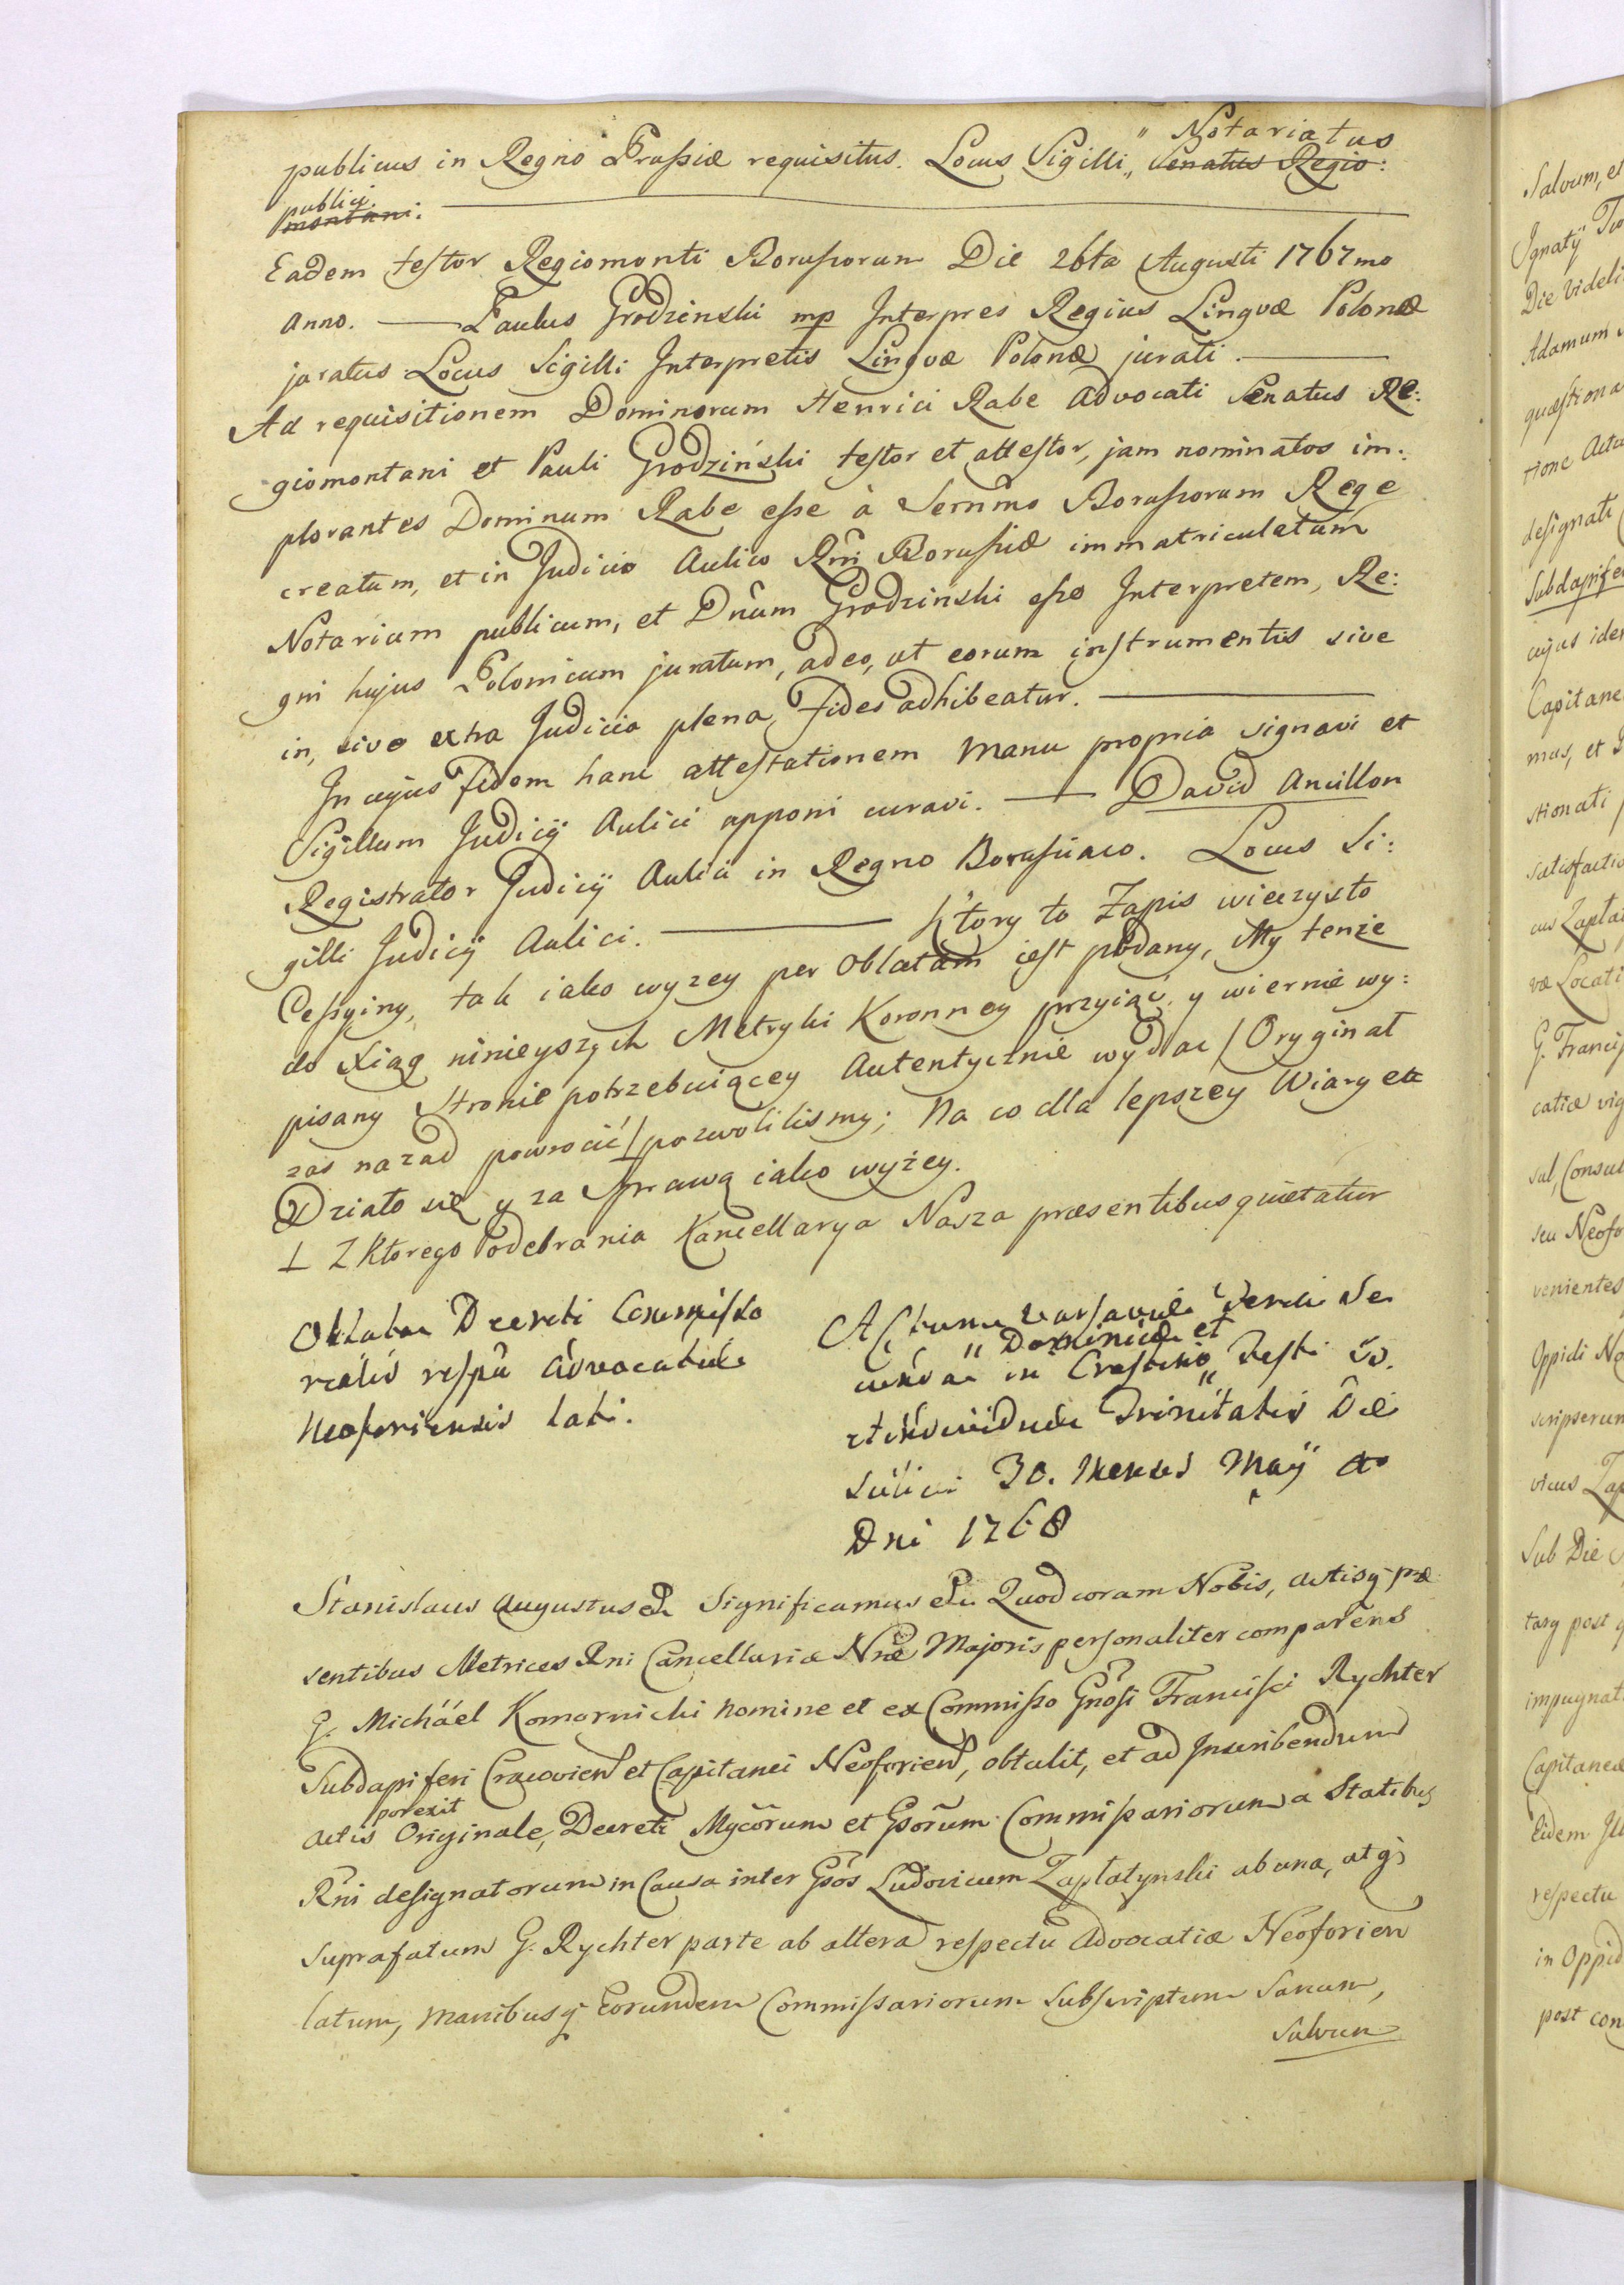 publicus in Regno Prussiæ requisitus. Locus Sigilli „ Notariatus
Senatus Regio:
publici.
montani:
Eadem testor Regiomonti Borussorum Die 26ta Augusti 1767mo
Anno. — Paulus Grodzinski mp Interpres Regius Lingvæ Polonæ
juratus Locus Sigilli Interpretis Lingvæ Polonæ jurati. —
Ad requisitionem Dominorum Henrici Rabe Advocati Senatus Re:
giomontani et Pauli Grodzinski testor et attestor, jam nominatos im:
plorantes Dominum Rabe esse à Sernmo Borussorum Rege
creatum, et in Judicio Aulico Rni Borussiæ immatriculatum
Notarium publicum, et Dnum Grodzinski esse Interpretem, Re:
gni hujus Polonicum juratum, adeo, ut eorum instrumentis sive
in, sive extra Judicia plena, Fides adhibeatur. —
In cujus Fidem hanc attestationem manu propria signavi et
Sigillum Judicij Aulici apponi curavi. — David Ancillon
Registrator Judicij Aulici in Regno Borussiaco. Locus Si:
gilli Judicij Aulici. — Ktory to Zapis wieczysto
Cessyiny, tak iako wyzey per Oblatam iest podany, My tenże
do Xiąg ninieyszych Metryki Koronney przyiąć, y wiernie wy:
pisany Stronie potrzebuiącey Autentycznie wydac / Oryginał
zas nazad powrocić / pozwolilismy; Na co dla lepszey Wiary etc
Działo się y za Sprawą iako wyżey.
⊥ Z Ktorego odebrania Kancellarya Nasza præsentibus quietatur
Oblata Decreti Commisso
rialis respu Advocatiæ
Neoforiensis lati.
Actum Varsaviæ Feria Se
„ Dominicæ et
cunda in Crastino „ Festi SS.
et individuæ Trinitatis Die
scilicet 30. Mensis Maij Ao
Dni 1768
Stanislaus Augustus etc Significamus etc Quod coram Nobis, actisq præ
sentibus Metrices Rni Cancellariæ Nræ Majoris personaliter comparens
G. Michäel Komarnicki nomine et ex Commisso Gnosi Francisci Rychter
Subdapiferi Cracovien et Capitanei Neoforien, obtulit, et ad Inscribendum
porexit
actis Originale, Decreti Mgcorum et Gsorum Commissariorum a Statibus
Rni designatorum in Causa inter Gsos Ludovicum Zapłatynski ab una, atq
suprafatum G. Rychter parte ab altera respectu Advocatiæ Neoforien
latum, manibusq Eorundem Commissariorum Subscriptum Sanum,
Salvum
Salvum, et
Die Videli
Adamum
tione Actu
designati
Subdapife
cujus ide
Capitane
mus, et
stionati
satisfactio
væ Locati
G. Francis
catiæ vig
sul, Consul
seu Neofo
venientes
Oppidi No
scripserun
vicus Zap
Sub Die
impugnat
Capitaneæ
Eidem Ill
respectu
in Oppid
post con